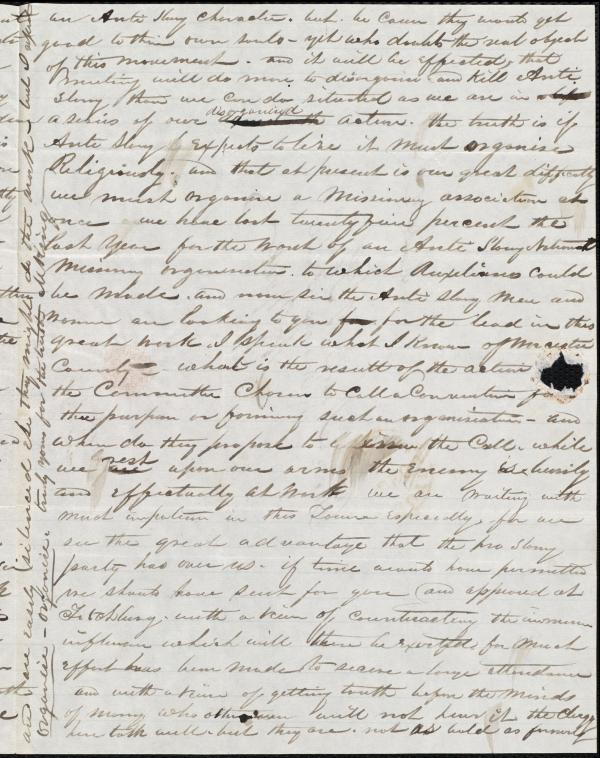 an Anti Slavy character. but be Cause they wont get
good to their own souls - yet who doubts the real object
of this movement. and it will be effected, that
meeting will do more to disorganise and Kill Anti
Slavy than we Can do situated as we are in
a series of our disorganised action. the truth is if
Anti Slavy Expects to live it Must organise
Religiously. and that at present is our great difficulty
we must organise a Missionary association at
once we have lost twenty five percent the
last Year for the Want of an Anti Slavy National
Missionary organisation. to which Auxiliaries Could
be Made. and now sir the Anti Slavy Men and
Women are looking to you for the lead in this
great Work. I speak what I Know of Worcester
County - what is the result of the action
the Committee Chosen to Call a Convention f
the purpose of forming such an organisation - and
when do they propose to issue the Call. while
we rest upon our arms the Enemy is busily
and effectually at Work we are waiting with
much impatience in this Town Especially, for we
see the great advantage that the pro Slavy
party has over us. if time would have permitted
we should have sent for you and appeared at
Fitchburg. with a view of counteracting the immense
influence which will there be exerted. for Much
effort has been Made to secure a large attendance
and with a view of getting truth before the Minds
of many who otherwise will not hear it the Clergy
here talk well - but they are not as bold as formerly
and are easily silenced
Organise - Organise. truly yours for the truth